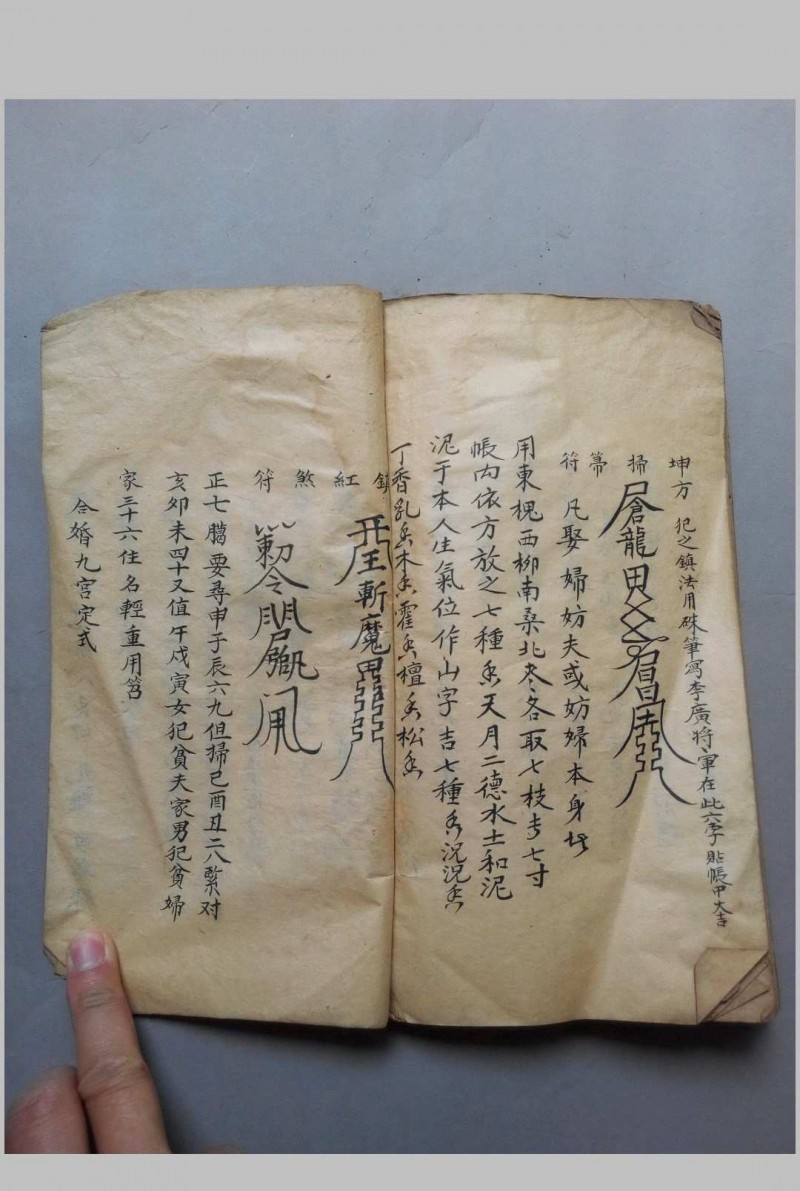 坤方 犯之鎮法用硃筆寫李廣將軍在此六字貼帳甲大吉
掃箒符
凡娶婦妨夫或妨婦本身者
用東槐西柳南桑北枣各取七枝長七寸
帳內依方放之七種香天月二德水土和泥
泥于本人生氣位作山字吉七種香沉沉香
丁香乳香木香霍香檀香松香
鎮紅煞符
斬魔
正七臈要尋申子辰六九但掃巳酉丑二八緊对
亥卯未四十又值午戌寅女犯貧夫家男犯貧婦
家三十六住名輕重用
合婚九宮定式